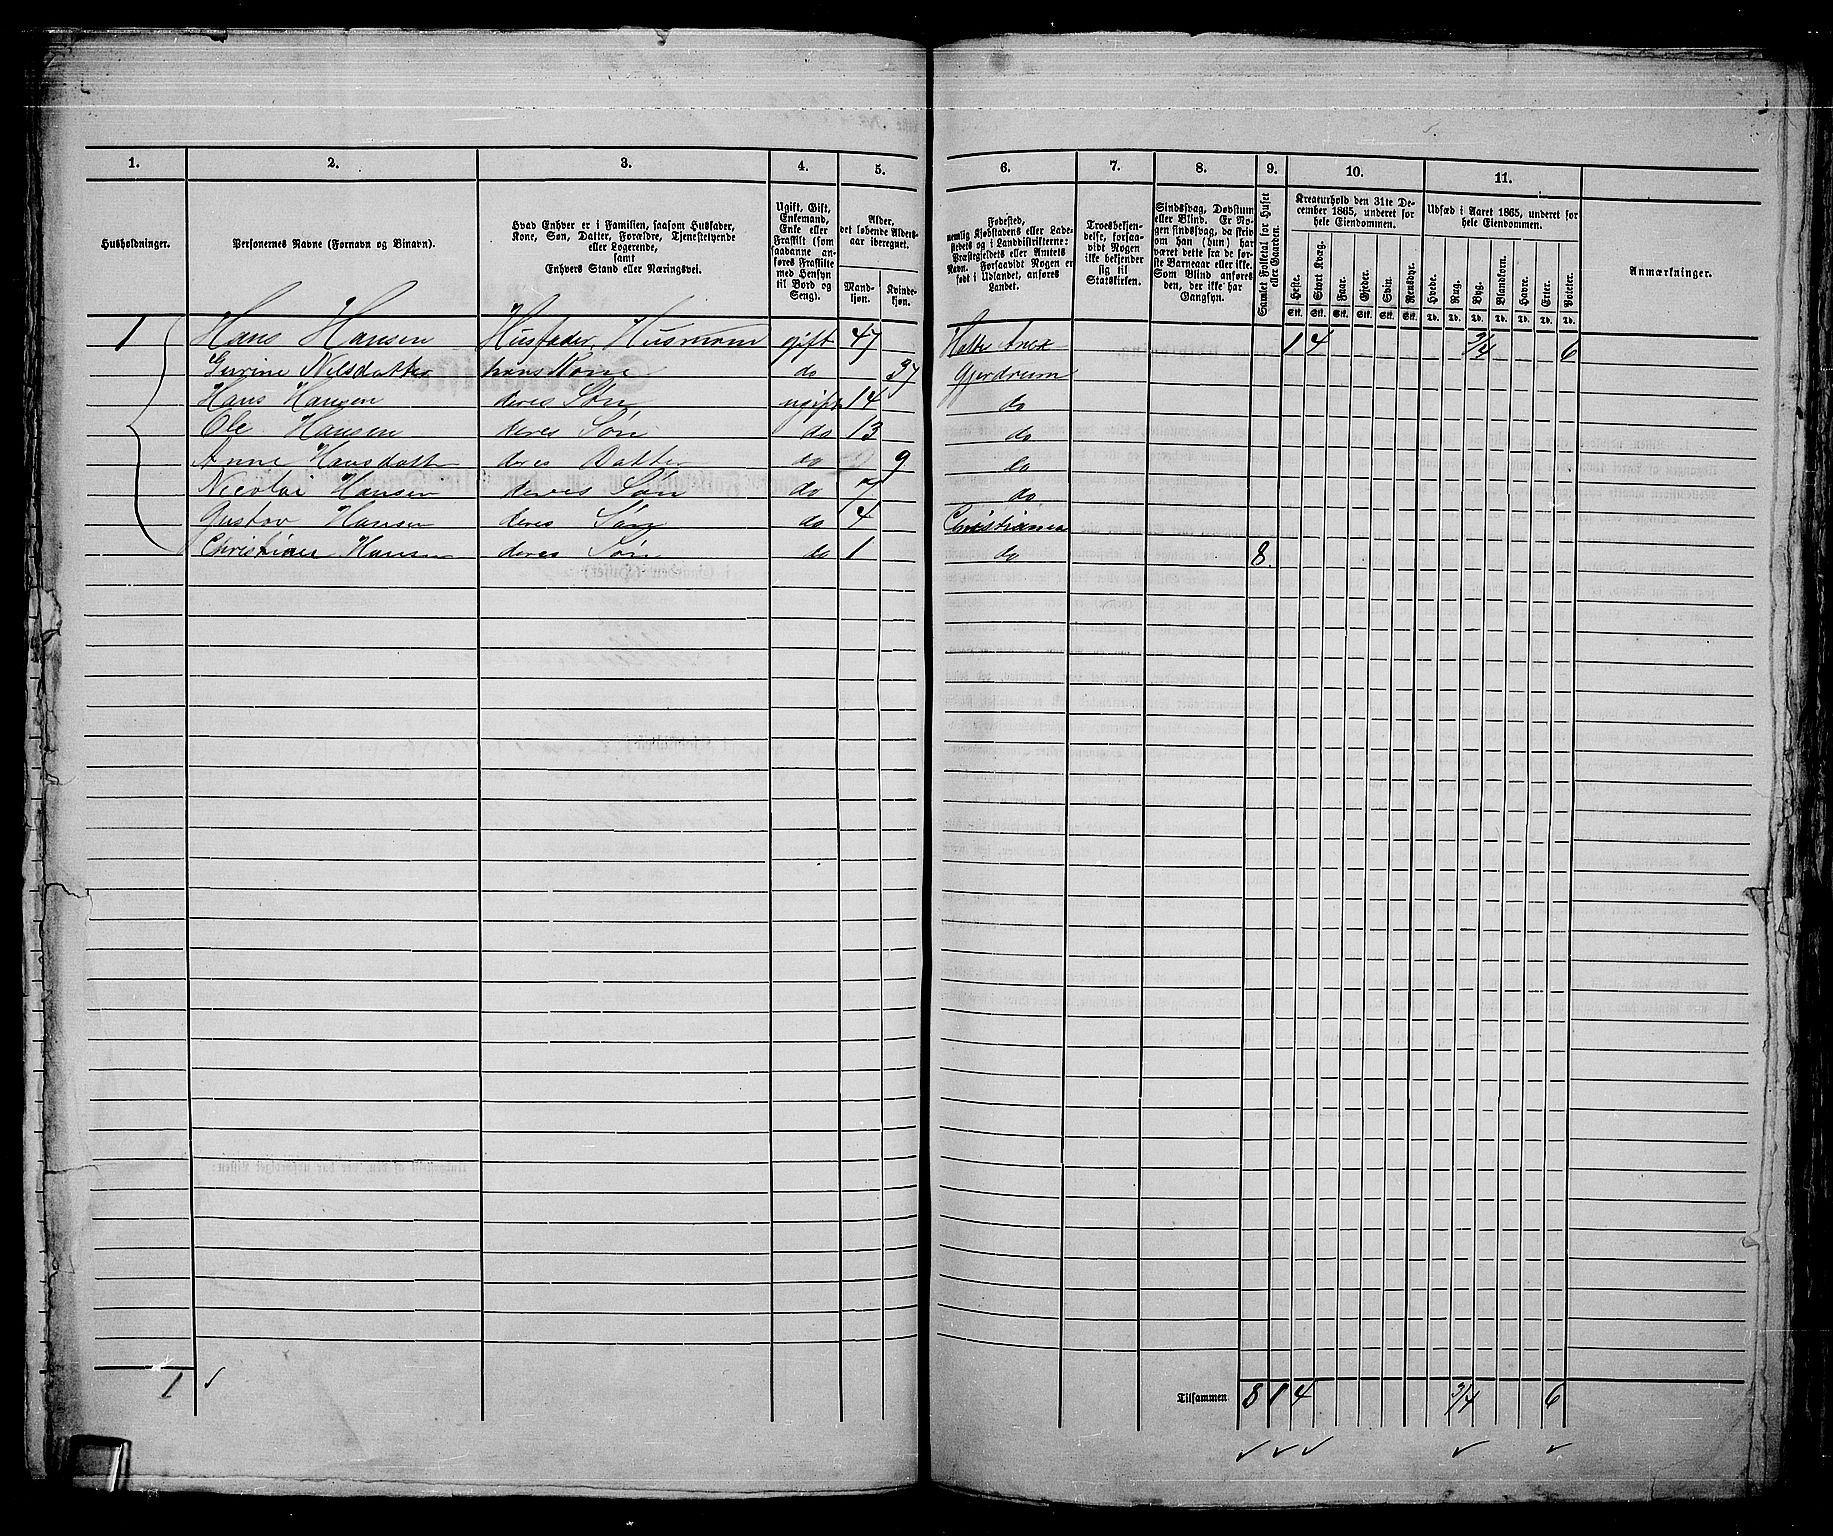 1. 2. 3. 4. 5. 6. 7. 8. 9. 10. 11.
Husholdninger.
Personernes Navne (Fornavn og Binavn).
Hvad Enhver er i Familien, saasom Husfader,
Kone, Søn, Datter, Forældre, Tjenestetyende
eller Logerende,
samt
Enhvers Stand eller Næringsvei.
Ugift, Gift,
Enkemand,
Enke eller
Fraskilt (som
saadanne an-
føres Fraskilte
med Hensyn
til Bord og
Seng).
Alder,
det løbende Alders-
aar iberegnet.
Mand-
kjøn.
Kvinde-
kjøn.
Fødested,
nemlig Kjøbstadens eller Lade-
stedets og i Landdistrikterne:
Præstegjeldets eller Amtets
Navn. Forsaavidt Nogen er
født i Udlandet, anføres
Landet.
Troesbekjen-
delse, forsaa-
vidt Nogen
ikke bekjender
sig til
Statskirken.
Sindssvag, Døvstum
eller Blind. Er No-
gen sindssvag, da skriv
om han (hun) har
været dette fra de før-
ste Barneaar eller ikke.
Som Blind ansøres
den, der ikke har
Gangsyn.
Samlet Folketal for Huset
eller Gaarden.
Kreaturhold den 31te De-
cember 1865, underet for
hele Eiendommen.
Heste. Stort Kvæg. Faar. Gjeder. Svin. Rensdyr.
Stk. Stk. Stk. Stk. Stk. Stk.
Udsæd i Aaret 1865, underet for
hele Eiendommen.
Hvede. Rug. Byg. Blandkorn. Havre. Erter. Poteter.
Td. Td. Td. Td. Td. Td. Td.
Anmærkninger.
1 Hans Hansen Husfader, Husmand gift 47 Holter Anex 1 4 3/4 6
Nilsdatter hans Kone do 37 Gjerdrum
Hans Hansen deres Søn ugift 14 do
Ole Hansen deres Søn do 13 do
Anne Hansdatter deres Datter do 9 do
Nicolai Hansen deres Søn do 7 do
Gustav Hansen deres Søn do 4 Christiania
Christian Hansen deres Søn do 1 do 8
1
Tilsammen 8 1 4 3/4 6